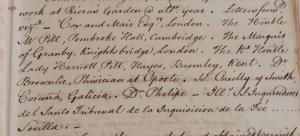 work at Rivers Garden @ ult.º year. Letters found
vizt. – Cox and Mair Esqrs. London. The Honble
Mr Pitt, Pembroke Hall, Cambridge. The Marquis
of Granby, Knightsbridge, London. The Rt. Honble
Lady Harriott Pitt, Hayes, Bromley, Kent. Dr
Brownle, Phisician at Oporto. Ss. Quilly y Smith,
Coruña, Galicia. Dn Phelipe – Illes. Ss. Inquisidores
del Santo Tribunal de la Inquisicion de la Feé
Sevilla. –